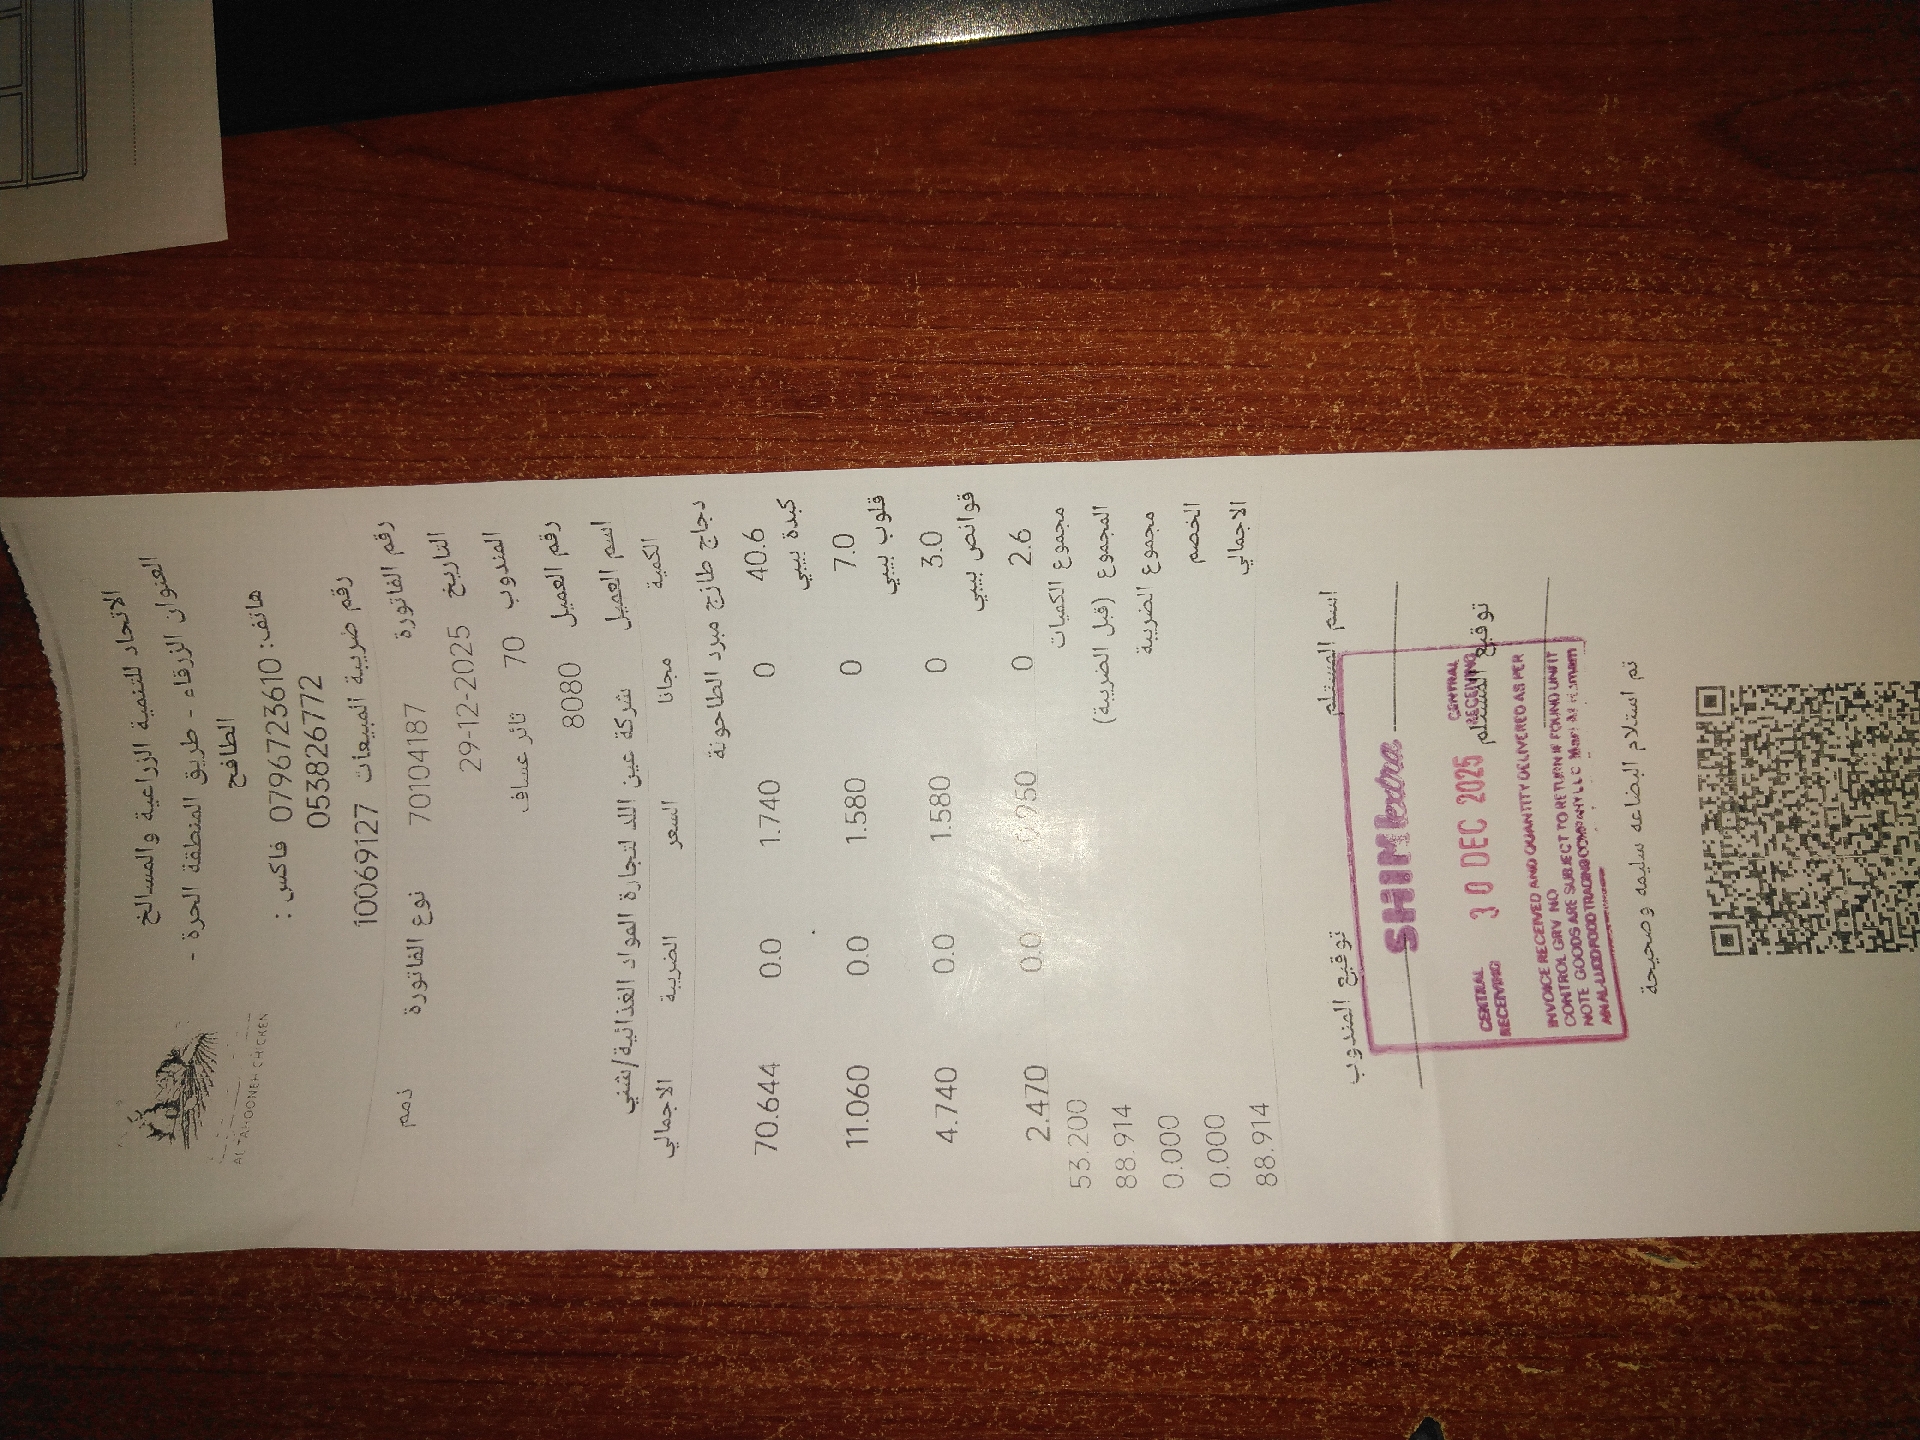 الاتحاد للتنمية الزراعية والمسالخ
العنوان الزرقاء - طريق المنطقة الحرة -
الطافح
هاتف: 0796723610 فاكس :
0538826772
رقم ضريبة المبيعات 10069127
AL TAHOONEH CHICKEN
رقم الفاتورة 70104187 نوع الفاتورة ذمم
التاريخ 29-12-2025
المندوب 70 ثائر عساف
رقم العميل 8080
اسم العميل شركة عين اللد لتجارة المواد الغذائية/شني
الكمية مجانا السعر الضريبة الاجمالي
دجاج طازج مبرد الطاحونة
40.6 0 1.740 0.0 70.644
كبدة بيبي
7.0 0 1.580 0.0 11.060
قلوب بيبي
3.0 0 1.580 0.0 4.740
قوانص بيبي
2.6 0 0.950 0.0 2.470
مجموع الكميات 53.200
المجموع (قبل الضريبة) 88.914
مجموع الضريبة 0.000
الخصم 0.000
الاجمالي 88.914
اسم المستلم توقيع المندوب
توقيع المستلم
SHIMIextra
CENTRAL RECEIVING 30 DEC 2025 CENTRAL RECEIVING
INVOICE RECEIVED AND QUANTITY DELIVERED AS PER
CONTROL GRV NO
NOTE GOODS ARE SUBJECT TO RETURN IF FOUND UNFIT
FOOD TRADING COMPANY LLC
تم استلام البضاعه سليمه وصحيحة